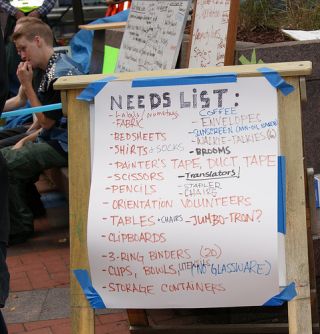 NEEDS LIST:
- Labels/Numbering
- FABRIC
- BEDSHEETS
- SHIRTS + SOCKS
- PAINTER'S TAPE, DUCT TAPE
- SCISSORS
- PENCILS
- ORIENTATION VOLUNTEERS
- TABLES + CHAIRS
- CLIPBOARDS
- 3-RING BINDERS (20)
- CUPS, BOWLS, UTENSILS (NO GLASSWARE)
- STORAGE CONTAINERS
- COFFEE
- ENVELOPES
- SUNSCREEN
- WALKIE-TALKIES (6)
- BROOMS
- Translators
- STAPLER
- CHAIRS
- JUMBO-TRON?